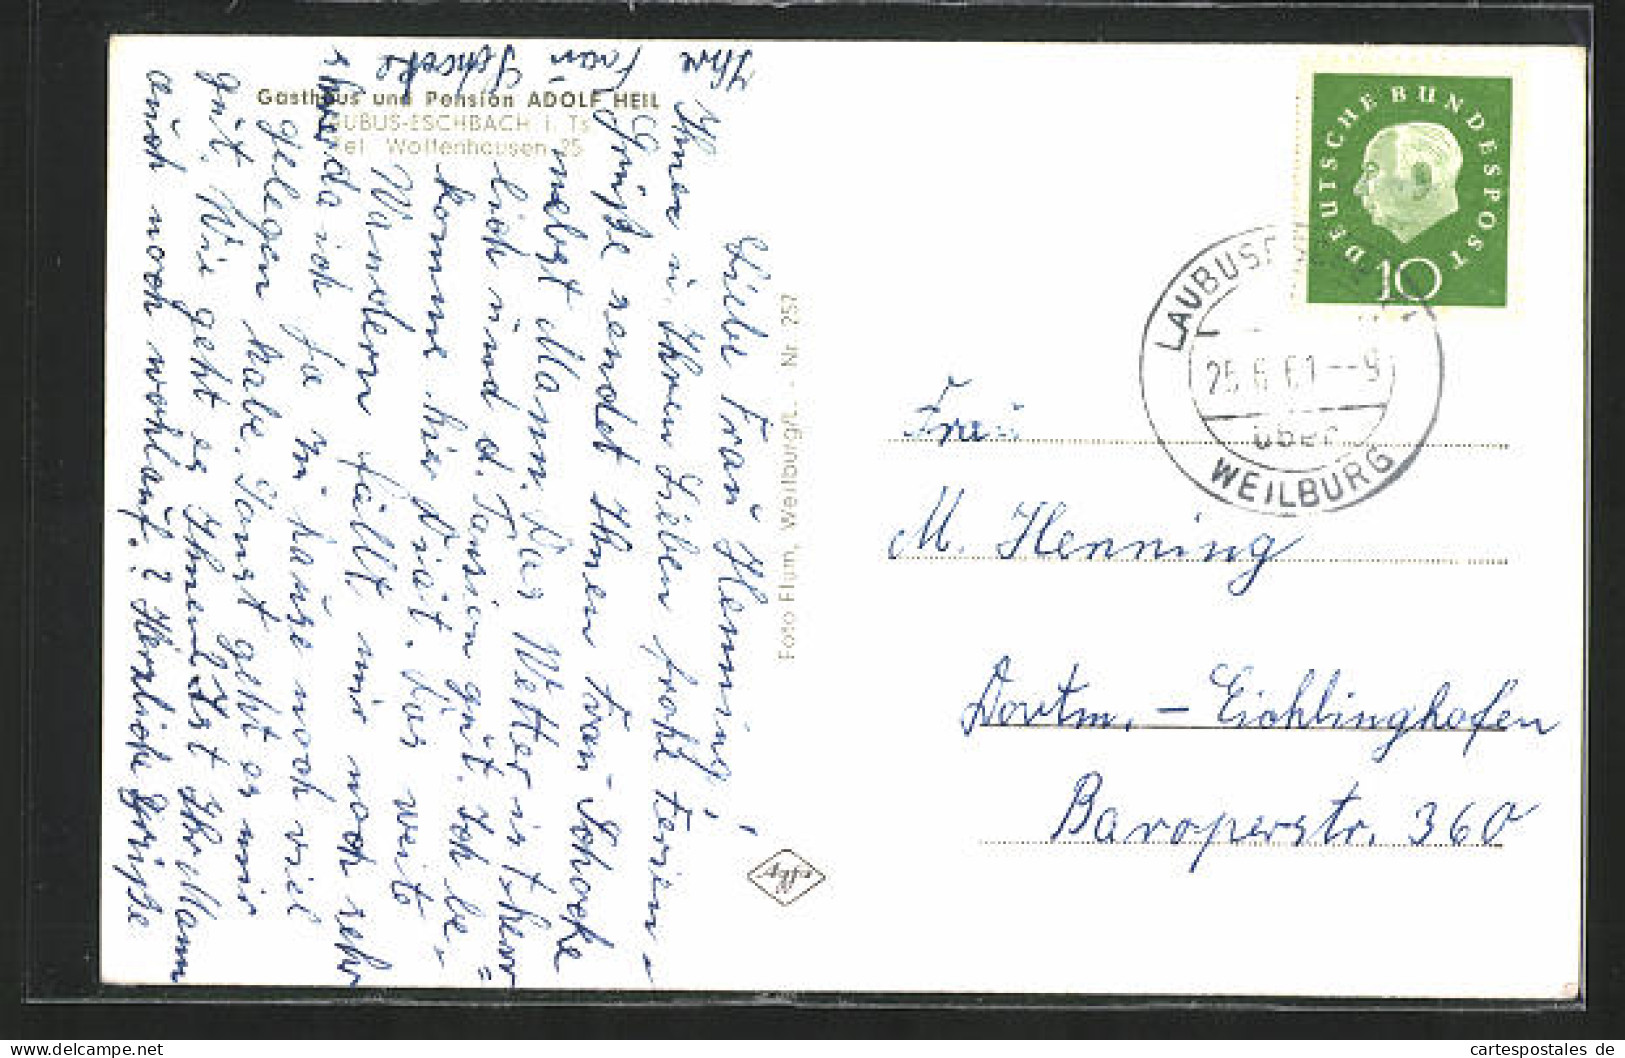 Gasthaus und Pension ADOLF HEIL
LAUBUS-ESCHBACH i. Ts
Tel. Wolfenhausen 25
Liebe Frau Henning,
Ihnen u. Ihren Lieben froh Ferien-
Grüße sendet Ihnen Frau Schocke
nebst Mann. Das Wetter ist herr=
lich und d. Taunus gut. Ich be-
komme hier Diät. Das weite
Wandern fällt mir noch sehr
schwer, da ich ja zu hause noch viel
gelegen habe. Sonst geht es mir
gut. Wie geht es Ihnen? Ist Ihr Mann
auch noch wohlauf? Herzliche Grüße
Ihre Frau Schocke
Foto Flum, Weilburg/L. - Nr. 257
Agfa
DEUTSCHE BUNDESPOST
10
LAUBUSESCHBACH
25.6.61--9
über
WEILBURG
Frau
M. Henning
Dortm. - Eichlinghofen
Baroperstr. 360
www.cartespostales.de
cartespostales de